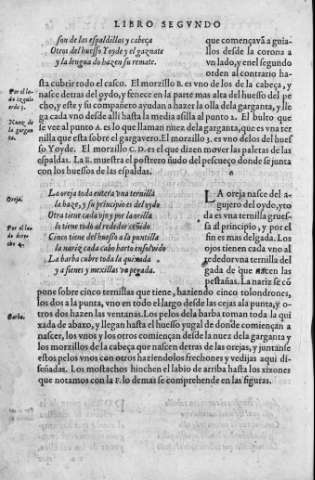 LIBRO SEGVNDO
son de las espaldillas y cabeça
Otros del huesso Yoyde y el gaznate
y la lengua do hazen su remate.
que començavã a guia-
llos desde la corona a
vn lado, y en el segundo
orden al contrario ha-
sta cubrir todo el casco. El morzillo B. es vno de los de la cabeça, y
nasce detras del oydo, y fenece en la parte mas alta del huesso del pe-
cho, y este y su compañero ayudan a hazer la olla dela garganta, y lle
ga cada vno desde alli hasta la media asilla al punto 2. El bulto que
se vee al punto A. es lo que llaman nuez dela garganta, que es vna ter
nilla que esta sobre el gargavero. El morzillo 3. es vno delos del hues
so Yoyde. El morzillo C. D. es el que dizen mover las paletas de las
espaldas. La E. muestra el postrero ñudo del pescueço donde se junta
con los huessos de las espaldas.
Por el la-
do izquier
do 3.
Nuez de
la gargan
ta.
Oreja.
La oreja toda entera vna ternilla
la haze, y su principio es del oydo
Otra tiene cada ojo y por la orilla
le tiene todo al rededor ceñido
Cinco tiene del huesso a la puntilla
la nariz cada cabo harto
La barba cubre toda la quixada
y a sienes y mexillas va pegada.
Por el la-
do derecho
4.
LA oreja nasce del a-
gujero del oydo, y to
da es vna ternilla grues-
sa al principio, y por el
fin es mas delgada. Los
ojos tienen cada vno al
rededor vna ternilla del
gada de que nascen las
pestañas. La nariz se cõ
pone sobre cinco ternillas que tiene, haziendo cinco tolondrones,
los dos a la punta, vno en todo el largo desde las cejas ala punta, y o-
tros dos hazen las ventanas. Los pelos dela barba toman toda la qui
xada de abaxo, y llegan hasta el huesso yugal de donde comiençan a
nascer, los vnos y los otros comiençan desde la nuez dela garganta y
los morzillos de la cabeça que nascen detras de las orejas, y juntanse
estos pelos vnos con otros haziendolos frechones y vedijas aqui di-
señadas. Los mostachos hinchen el labio de arriba hasta los xixones
que notamos con la F. lo demas se comprehende en las figuras.
Barba.